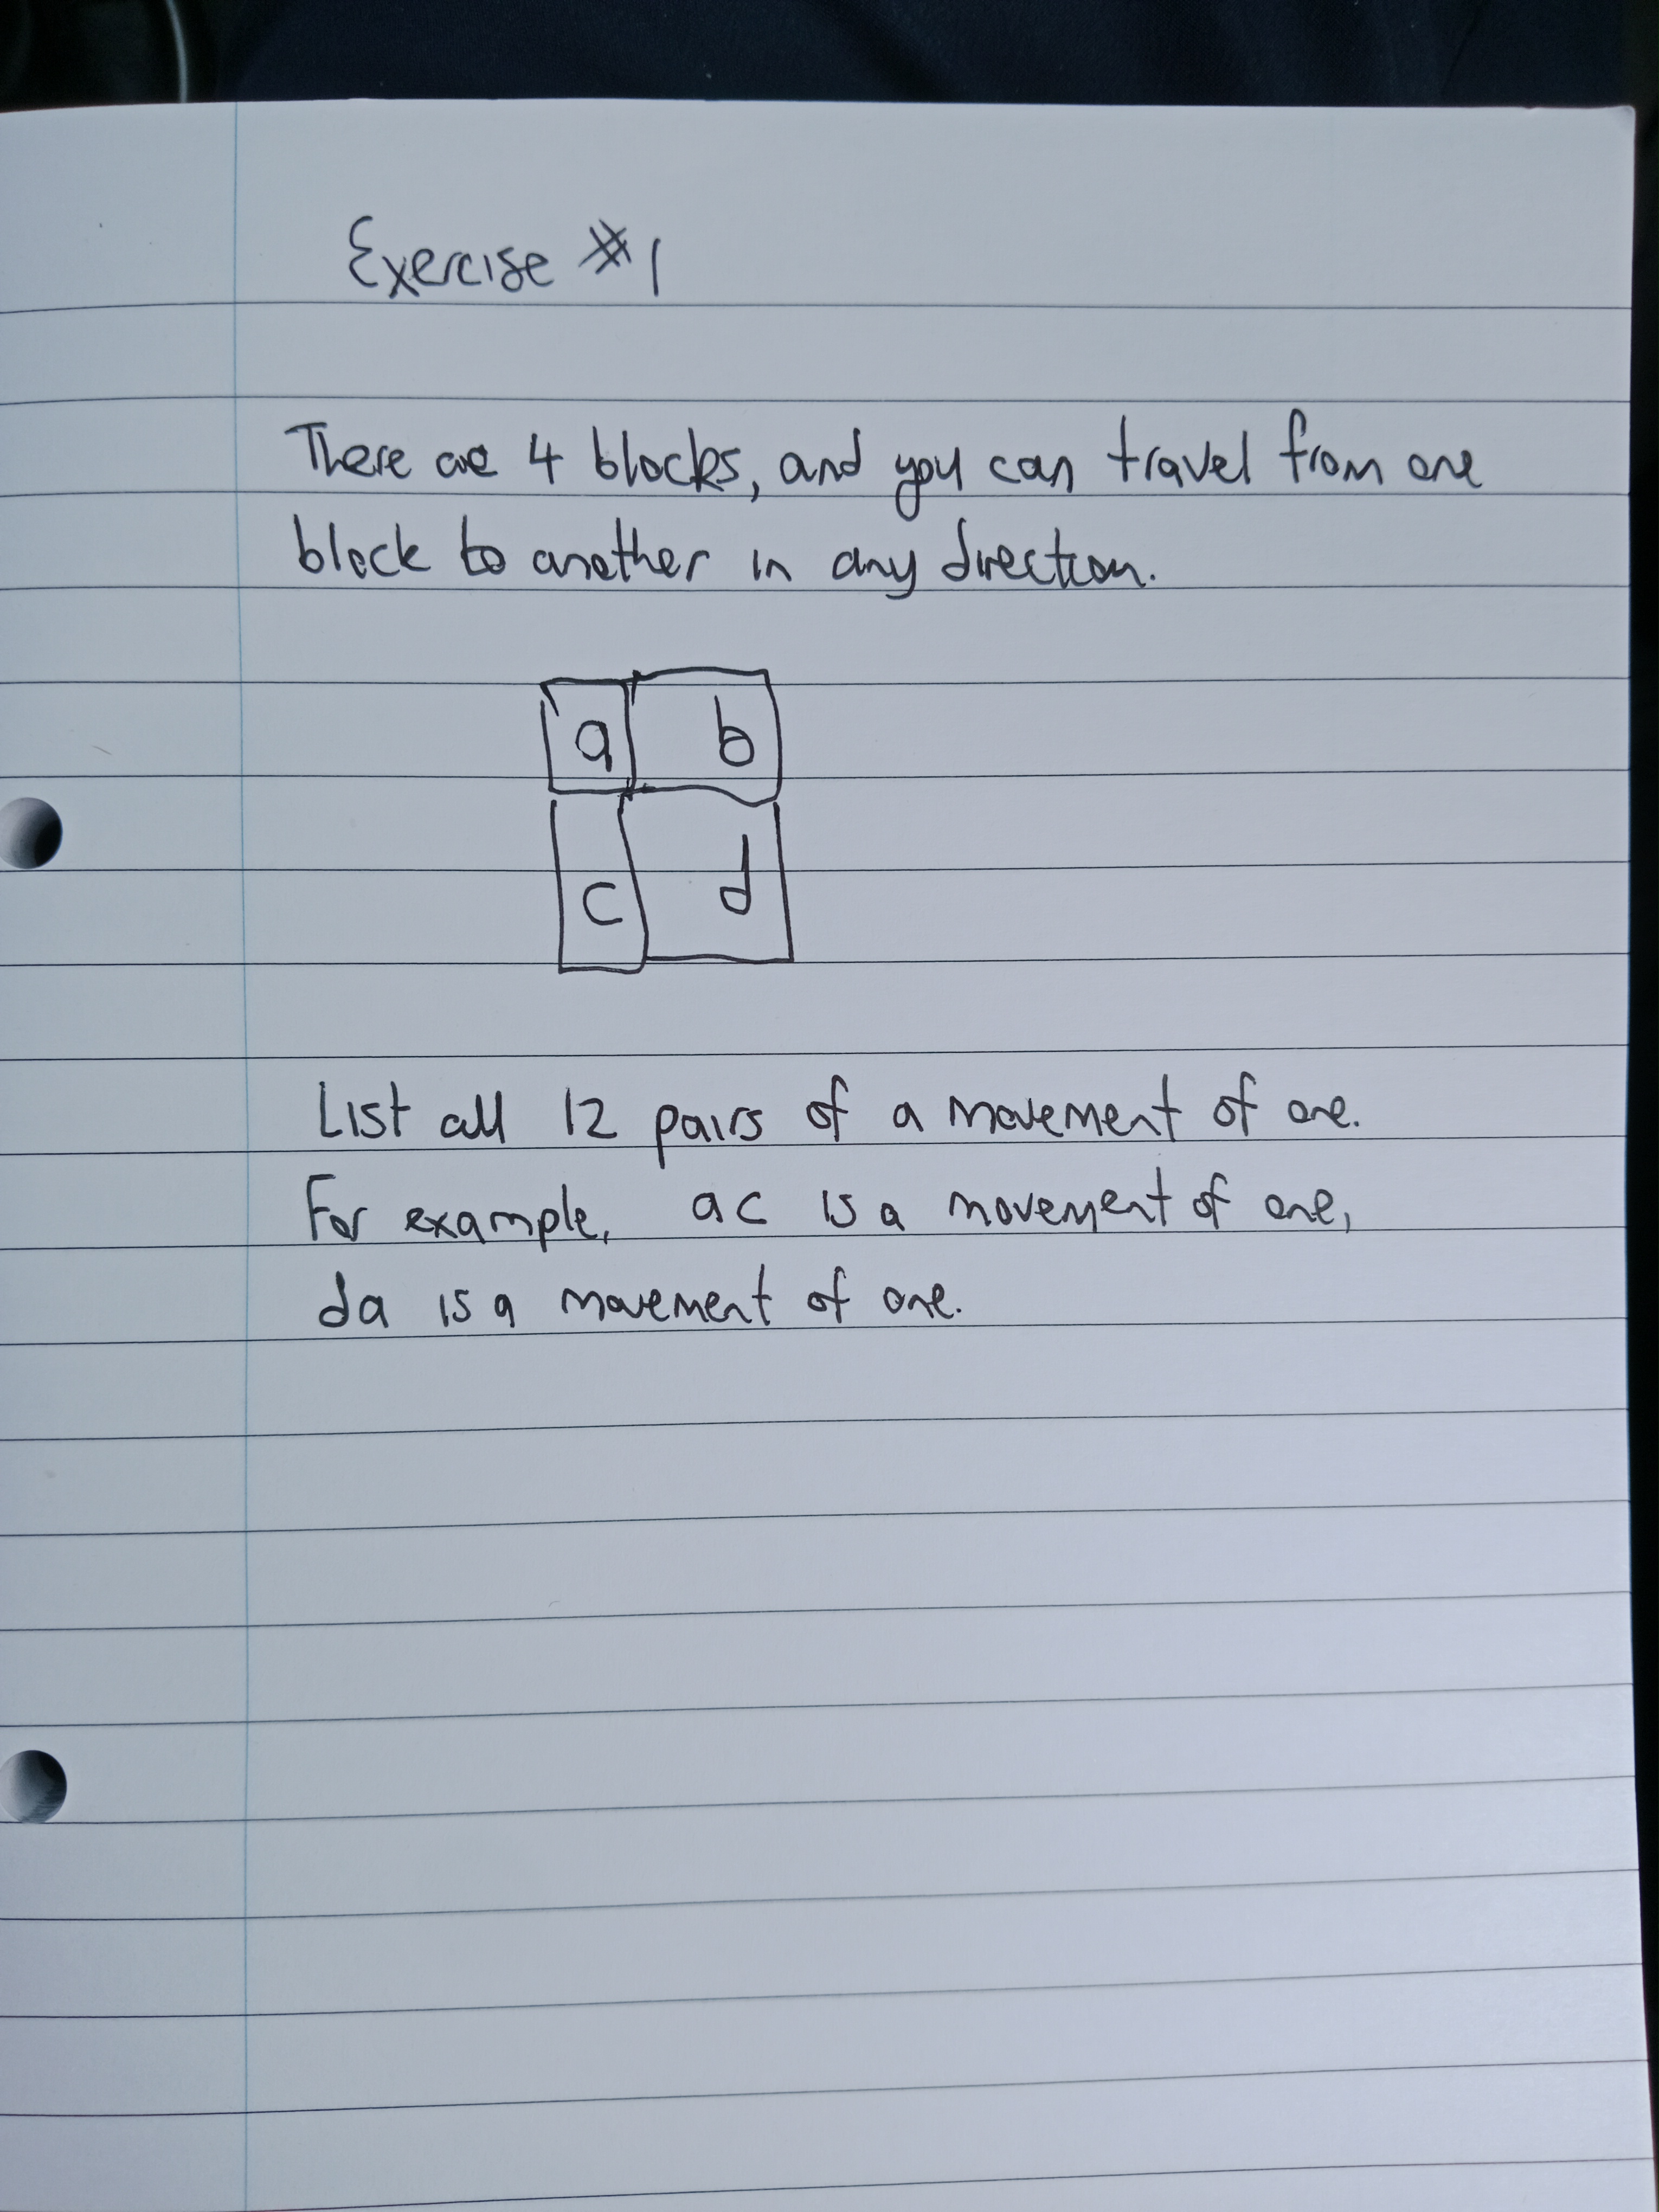 Exercise #1
There are 4 blocks, and you can travel from one
block to another in any direction.
a b
c d
List all 12 pairs of a movement of one.
For example, ac is a movement of one,
da is a movement of one.